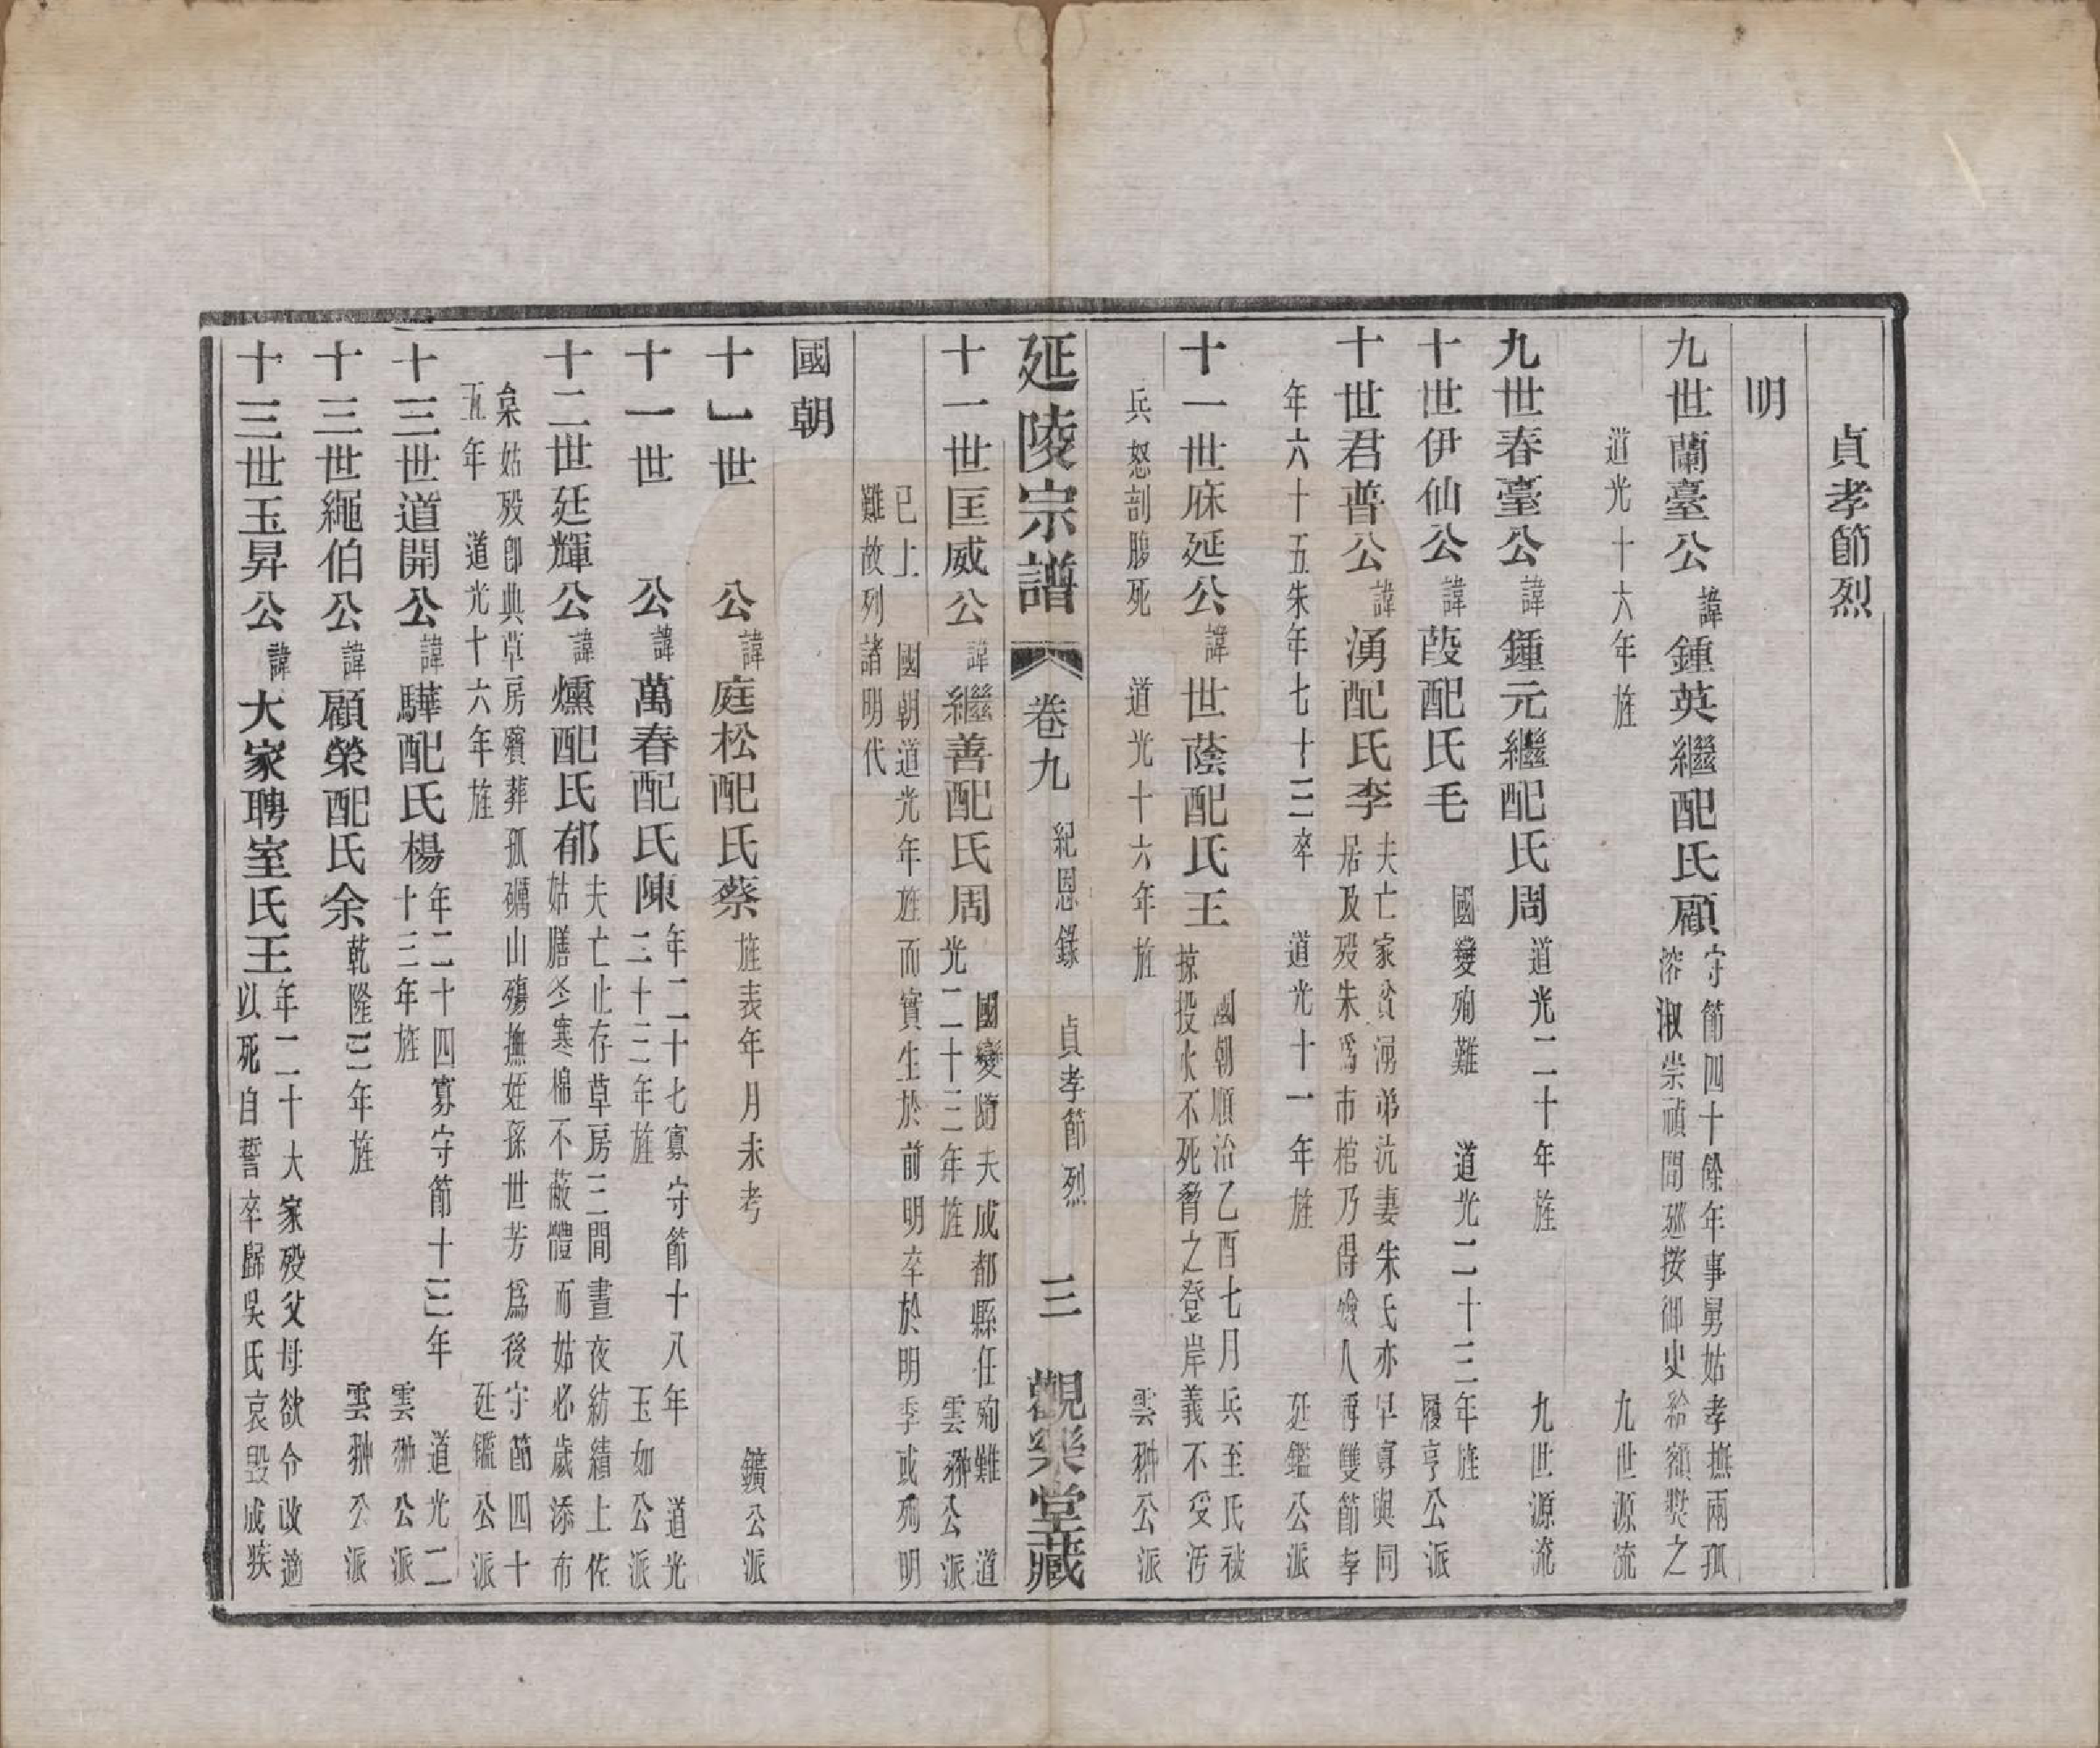 貞孝節烈
明
九世蘭臺公諱鍾英繼配氏顧守節四十餘年事舅姑孝撫兩孤
溶淑崇禎間廵按御史給額獎之
道光十六年旌 九世源流
九世春臺公諱鍾元繼配氏周道光二十年旌 九世源流
十世伊仙公諱葭配氏毛 國變殉難 道光二十三年旌
履亨公派
十世君普公諱湧配氏李夫亡家貧湧弟沆妻朱氏亦早寡與同
居及歿朱爲市棺乃得殮人稱雙節李
年六十五朱年七十三卒 道光十一年旌 延鑑公派
十一世庥延公諱世蔭配氏王 國朝順治乙酉七月兵至氏被
掠投水不死脅之登岸義不受汚
兵怒剖腸死 道光十六年旌 雲翀公派
延陵宗譜 卷九 紀恩錄 貞孝節烈 三 觀樂堂藏
十一世匡威公諱繼善配氏周 國變隨夫成都縣任殉難 道
光二十三年旌 雲翀公派
已上 國朝道光年旌而實生於前明卒於明季或殉明
難故列諸明代
國朝
十一世 公諱庭松配氏蔡旌表年月未考 鑛公派
十一世 公諱萬春配氏陳年二十七寡守節十八年 道光
二十二年旌 玉如公派
十二世廷輝公諱燻配氏郁夫亡止存草房三間晝夜紡績上佐
姑膳冬寒棉不蔽體而姑必歲添布
枲姑歿卽典草房殯葬孤礪山殤撫姪孫世芳爲後守節四十
五年 道光十六年旌 延鑑公派
十三世道開公諱驊配氏楊年二十四寡守節十三年 道光二
十三年旌 雲翀公派
十三世繩伯公諱顧榮配氏余乾隆三年旌 雲翀公派
十三世玉昇公諱大家聘室氏王年二十大家歿父母欲令改適
以死自誓卒歸吳氏哀毀成疾